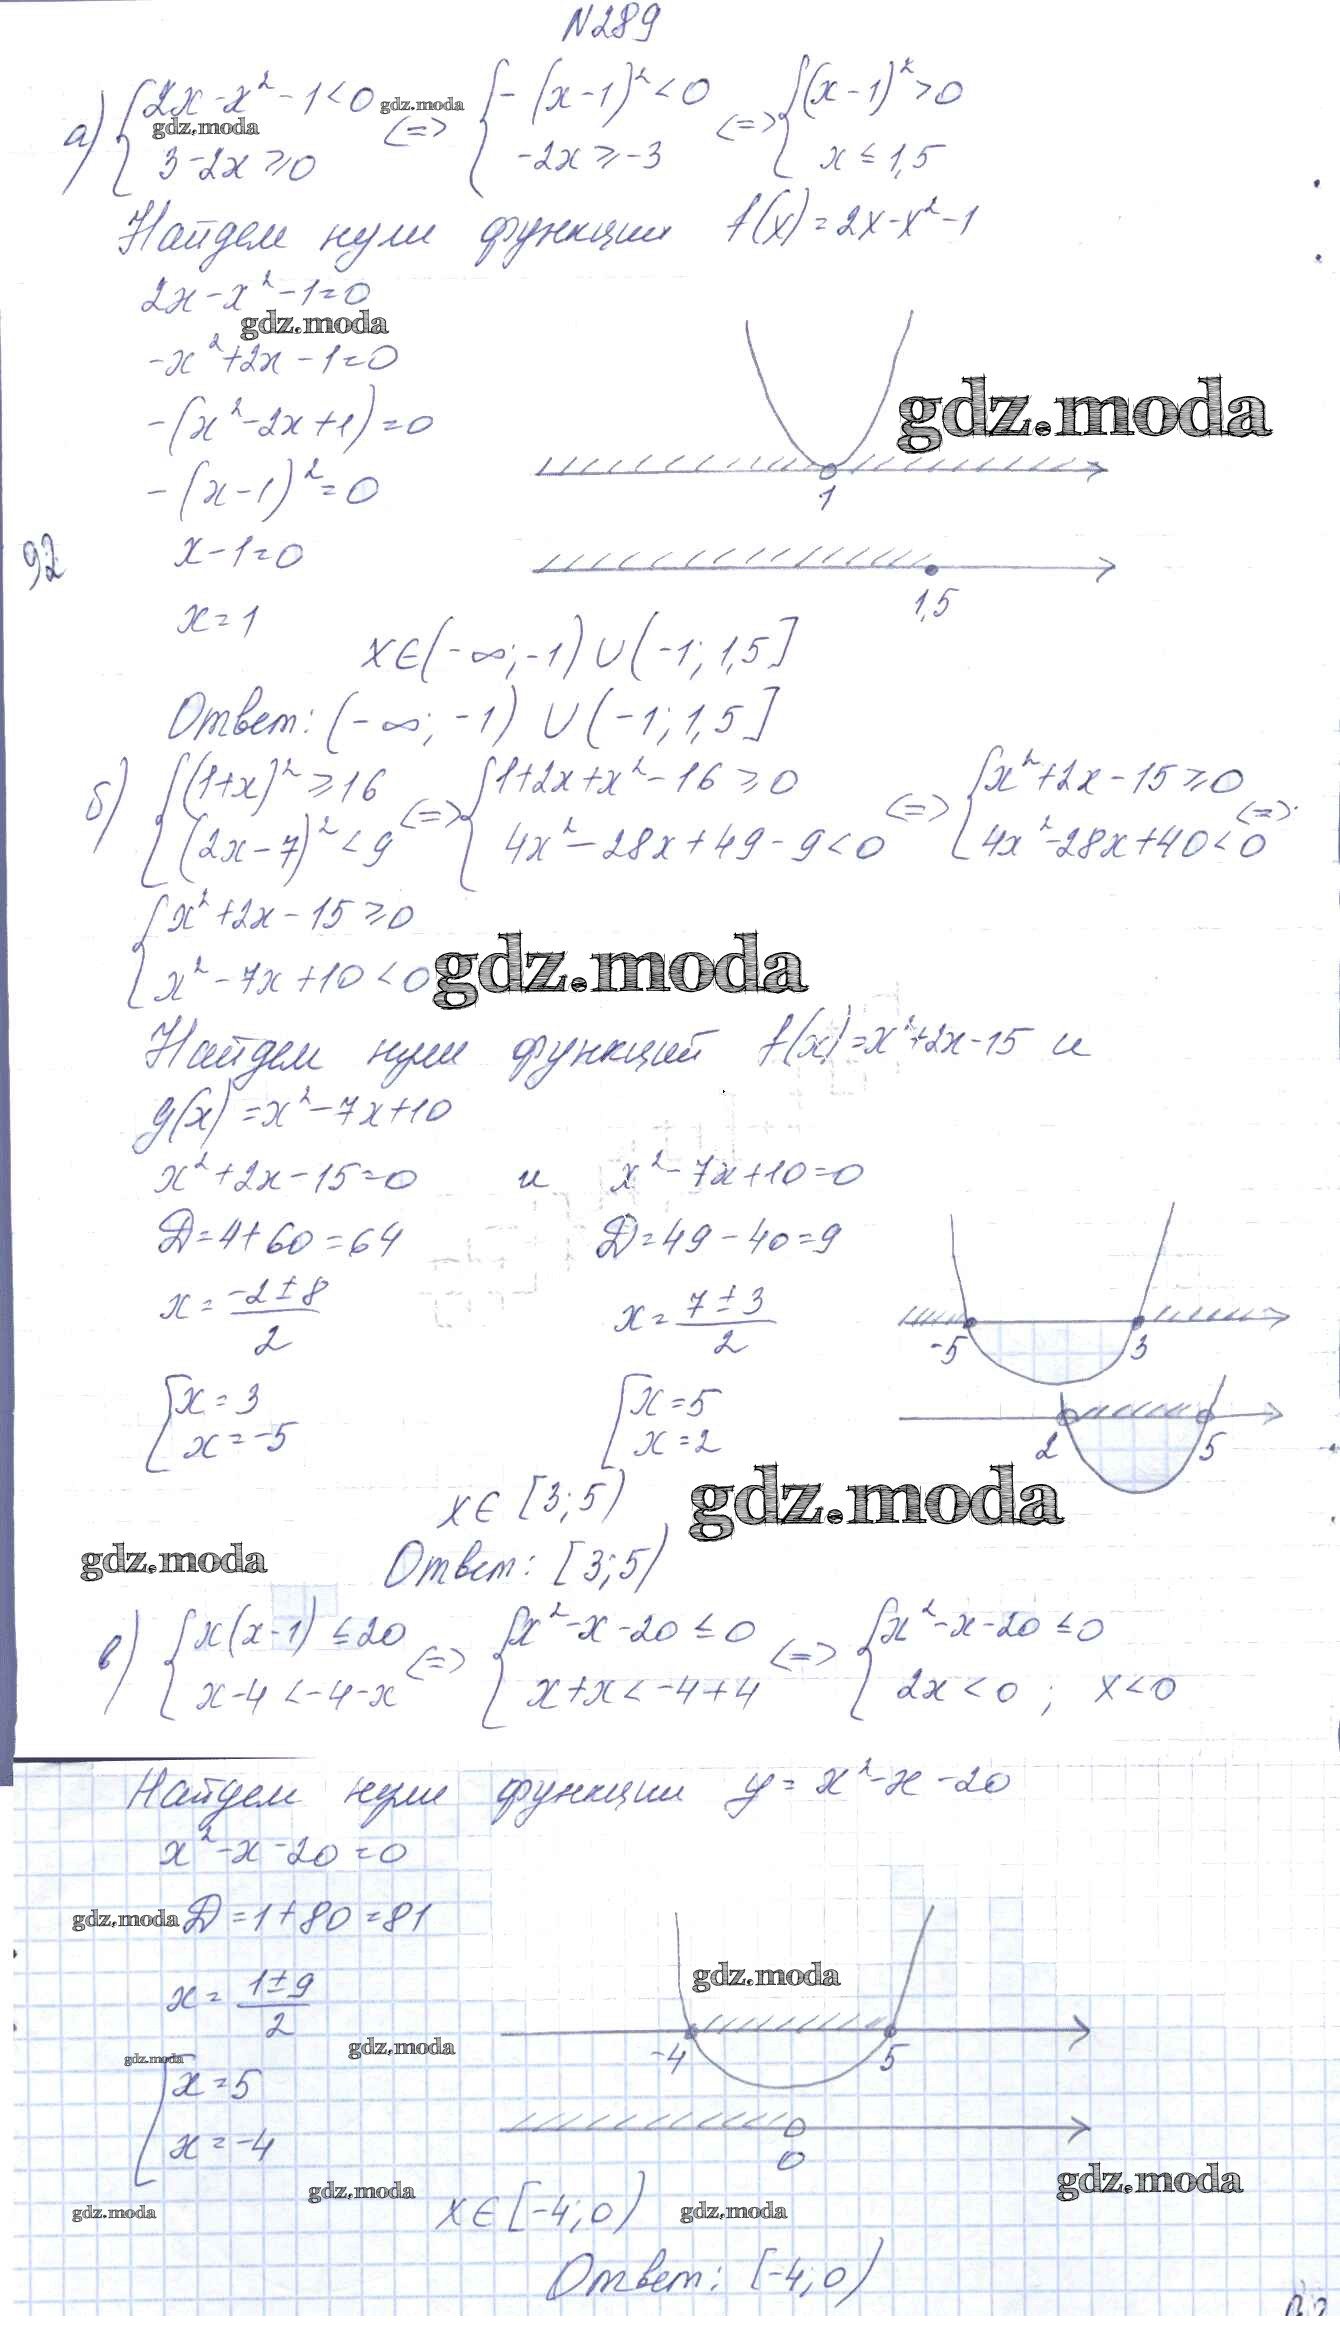 N289
а) {2x - x² - 1 < 0 <=> {-(x-1)² < 0 <=> {(x-1)² > 0
3 - 2x ≥ 0 -2x ≥ -3 x ≤ 1,5
gdz.moda
gdz.moda
Найдем нули функции f(x) = 2x - x² - 1
2x - x² - 1 = 0
gdz.moda
-x² + 2x - 1 = 0
gdz.moda
-(x² - 2x + 1) = 0
-(x-1)² = 0
1
92
x - 1 = 0
x = 1
1,5
x∈(-∞; -1) ∪ (-1; 1,5]
Ответ: (-∞; -1) ∪ (-1; 1,5]
б) {(1+x)² ≥ 16 <=> {1 + 2x + x² - 16 ≥ 0 <=> {x² + 2x - 15 ≥ 0 <=>
(2x-7)² < 9 4x² - 28x + 49 - 9 < 0 4x² - 28x + 40 < 0
{x² + 2x - 15 ≥ 0
x² - 7x + 10 < 0
gdz.moda
Найдем нули функций f(x) = x² + 2x - 15 и
g(x) = x² - 7x + 10
x² + 2x - 15 = 0 и x² - 7x + 10 = 0
D = 4 + 60 = 64 D = 49 - 40 = 9
x = (-2 ± 8)/2 x = (7 ± 3)/2
-5 3
[x = 3 [x = 5
x = -5 x = 2
2 5
x∈[3; 5)
gdz.moda
gdz.moda
Ответ: [3; 5)
в) {x(x-1) ≤ 20 <=> {x² - x - 20 ≤ 0 <=> {x² - x - 20 ≤ 0
x - 4 < -4 - x x + x < -4 + 4 2x < 0 ; x < 0
Найдем нули функции y = x² - x - 20
x² - x - 20 = 0
gdz.moda
D = 1 + 80 = 81
gdz.moda
x = (1 ± 9)/2
gdz.moda
-4 5
gdz.moda
[x = 5
x = -4
0
gdz.moda
gdz.moda
gdz.moda
x∈[-4; 0)
gdz.moda
Ответ: [-4; 0)